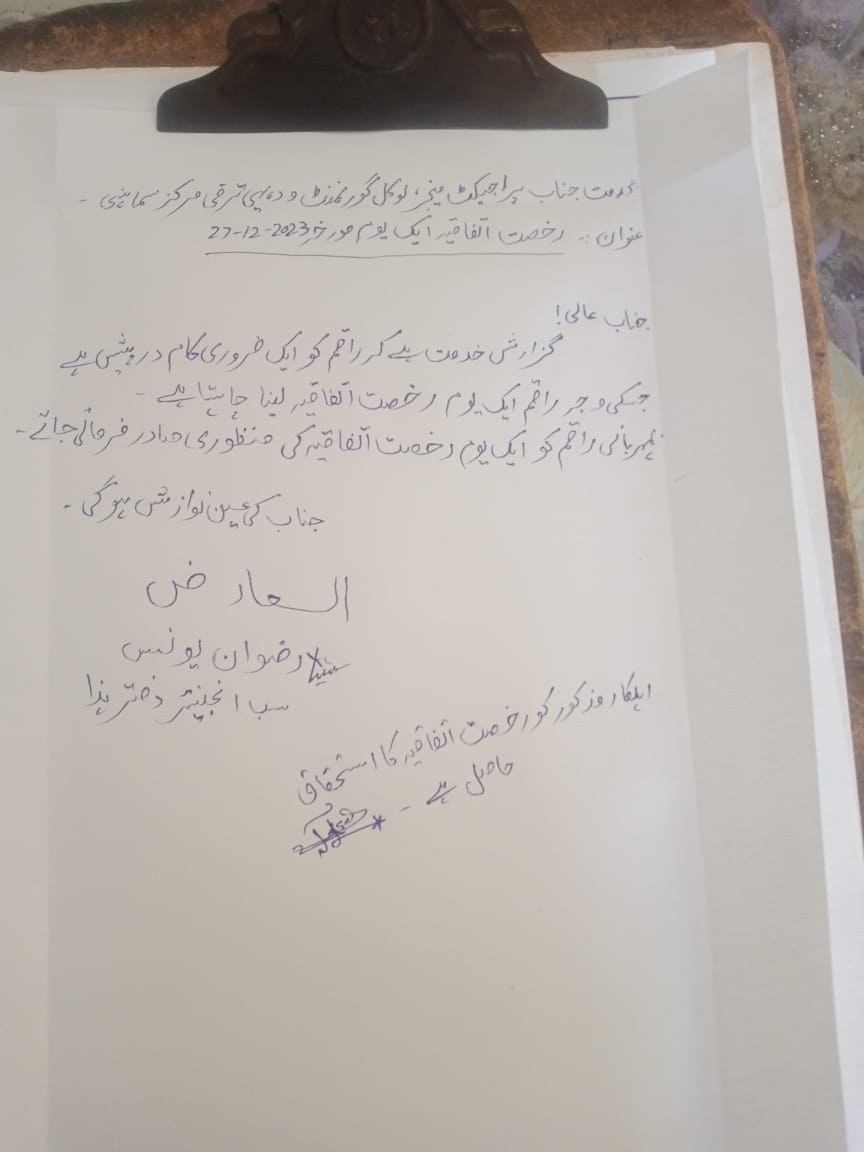 بخدمت جناب پراجیکٹ منیجر، لوکل گورنمنٹ و دہیی ترقی مرکز سماہنی -
عنوان :- رخصت اتفاقیہ ایک یوم مورخہ 27-12-2023
جناب عالی!
گزارش خدمت ہے کہ راقم کو ایک ضروری کام درپیش ہے
جسکی وجہ راقم ایک یوم رخصت اتفاقیہ لینا چاہتا ہے -
بمہربانی راقم کو ایک یوم رخصت اتفاقیہ کی منظوری صادر فرمائی جائے -
جناب کی عین نوازش ہوگی -
العارض
رضوان یونس
سب انجنیئر دفتر ہذا
اہلکار مذکور کو رخصت اتفاقیہ کا استحقاق
حاصل ہے -